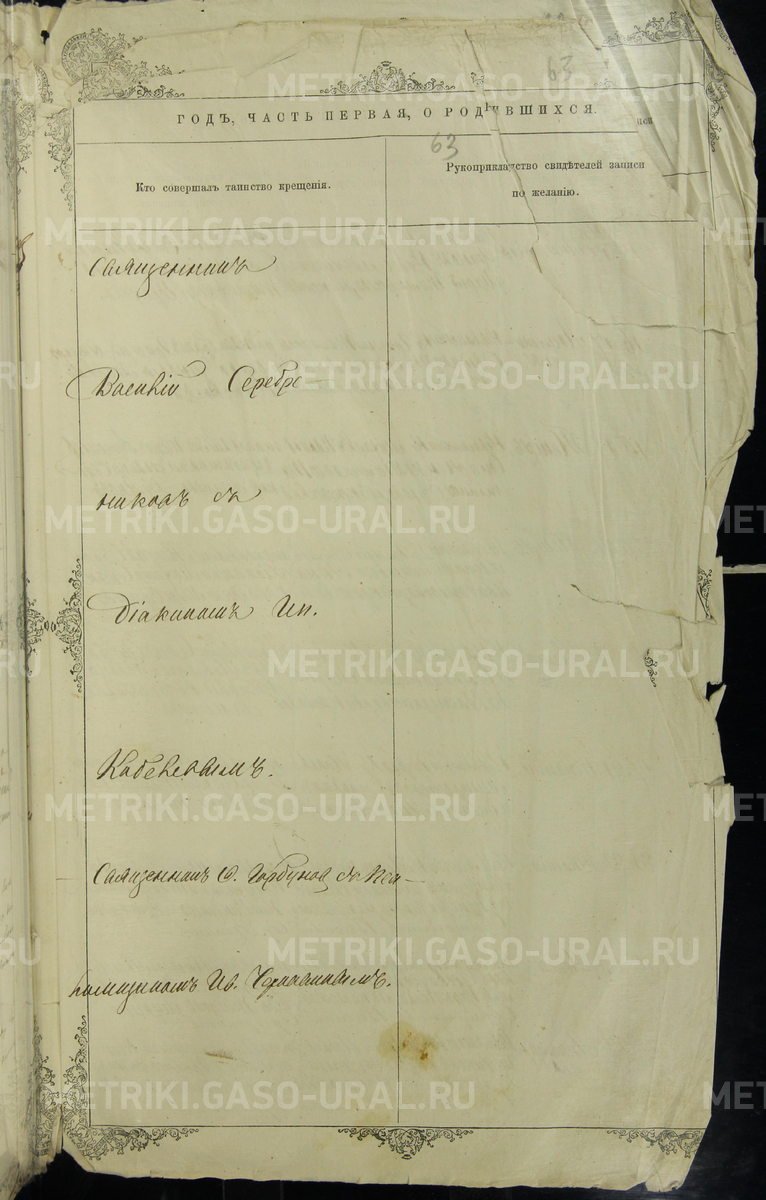 63
ГОДЪ, ЧАСТЬ ПЕРВАЯ, О РОДИВШИХСЯ.
63
Кто совершалъ таинство крещенія.
Рукоприкладство свидѣтелей записи
по желанію.
Священникъ
Василій Серебре-
никовъ съ
Діакономъ Ип.
Священникъ Ѳ. Горбуновъ съ Пса-
ломщикомъ Ив.
METRIKI.GASO-URAL.RU